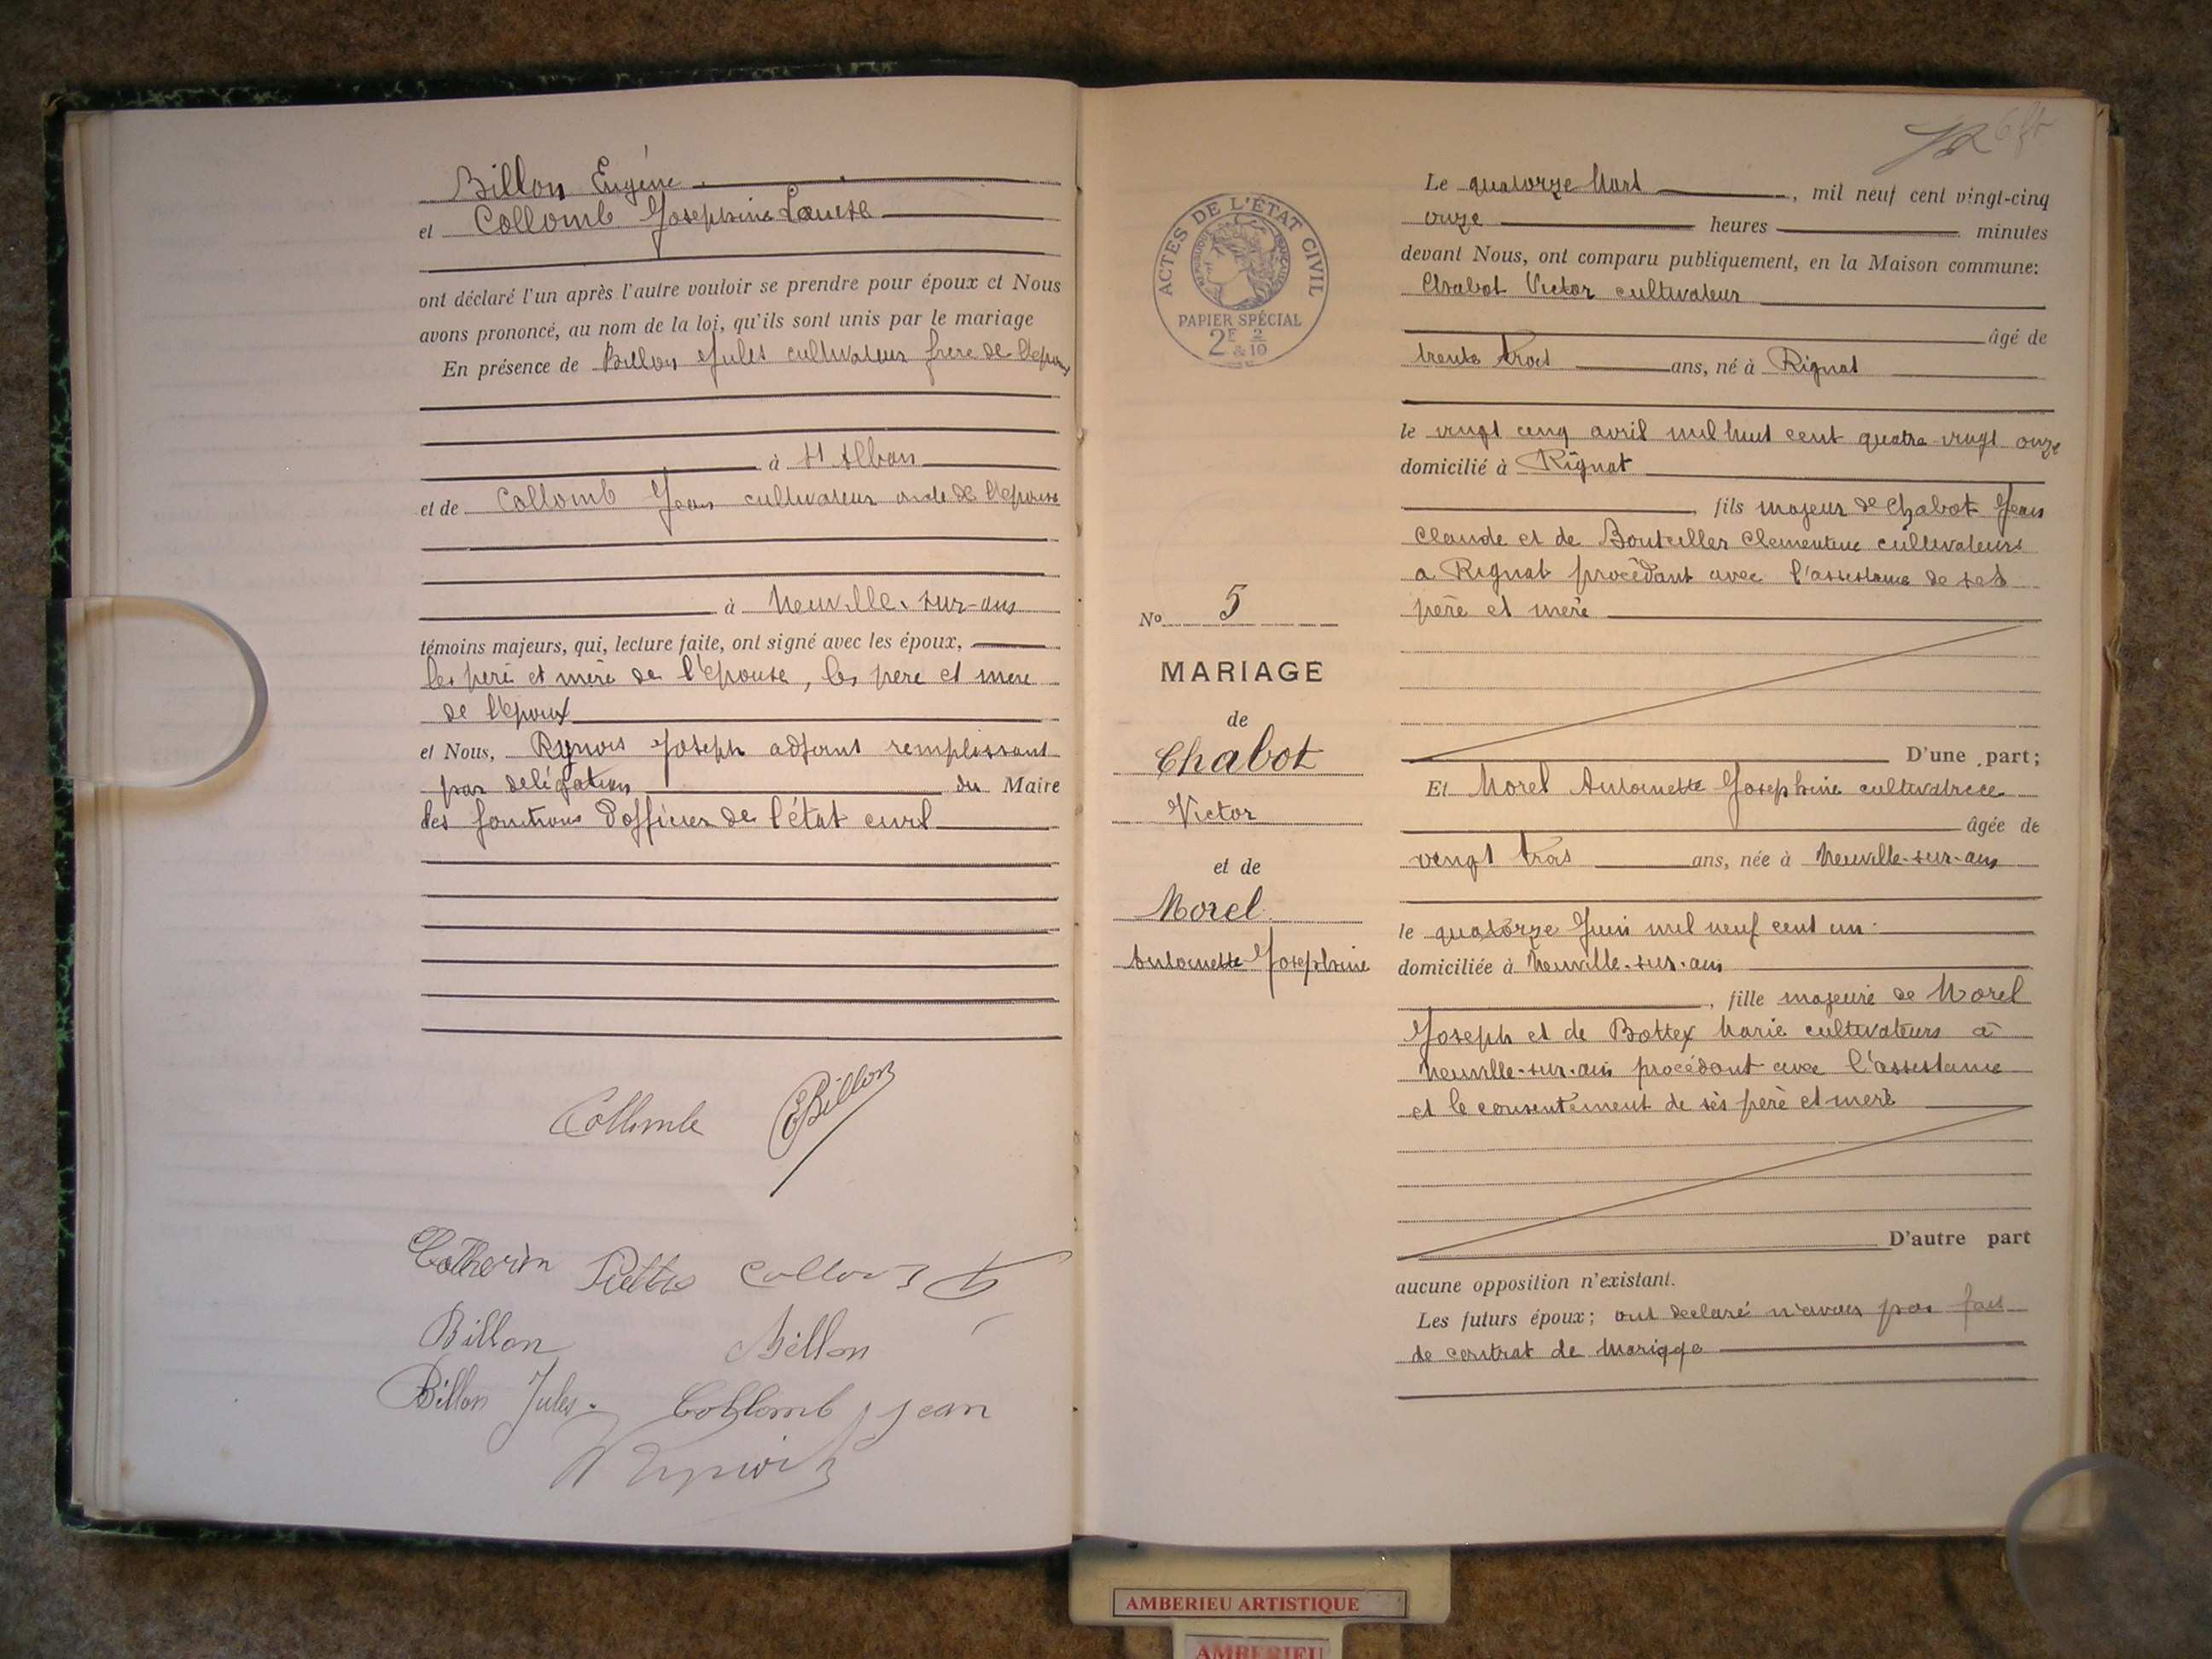 Billon Eugène
et Collomb Josephine Louise
ont déclaré l'un après l'autre vouloir se prendre pour époux et Nous
avons prononcé, au nom de la loi, qu'ils sont unis par le mariage
En présence de Billon Jules cultivateur frere de l'epoux
à St Alban
et de Collomb Jean cultivateur oncle de l'epouse
à Neuville-sur-ain
témoins majeurs, qui, lecture faite, ont signé avec les époux,
les peré et mère de l'épouse, les pere et mere
de l'epoux
et Nous, Joseph adjoint remplissant
par délégation du Maire
les fonctions d'officier de l'état civil
Collomb EBillon
Collomb
Billon Billon
Billon Jules. Collomb Jean
6
ACTES DE L'ÉTAT CIVIL
RÉPUBLIQUE FRANÇAISE
PAPIER SPÉCIAL
2F 2
& 10
No 5
MARIAGE
de
Chabot
Victor
et de
Morel
Antoinette Josephine
Le quatorze Mars, mil neuf cent vingt-cinq
onze heures minutes
devant Nous, ont comparu publiquement, en la Maison commune:
Chabot Victor cultivateur
âgé de
trente trois ans, né à Rignat
le vingt cinq avril mil huit cent quatre-vingt onze
domicilié à Rignat
, fils majeur de Chabot Jean
Claude et de Bouteiller Clementine cultivateurs
a Rignat procédant avec l'assistance de ses
père et mère
D'une part;
Et Morel Antoinette Josephine cultivatrice
âgée de
vingt trois ans, née à Neuville-sur-ain
le quatorze Juin mil neuf cent un
domiciliée à Neuville-sur-ain
, fille majeure de Morel
Joseph et de Bottex Marie cultivateurs à
Neuville-sur-ain procédant avec l'assistance
et le consentement de ses père et mère
D'autre part
aucune opposition n'existant.
Les futurs époux; ont declaré n'avoir pas fait
de contrat de Mariage
AMBERIEU ARTISTIQUE
AMBERIEU